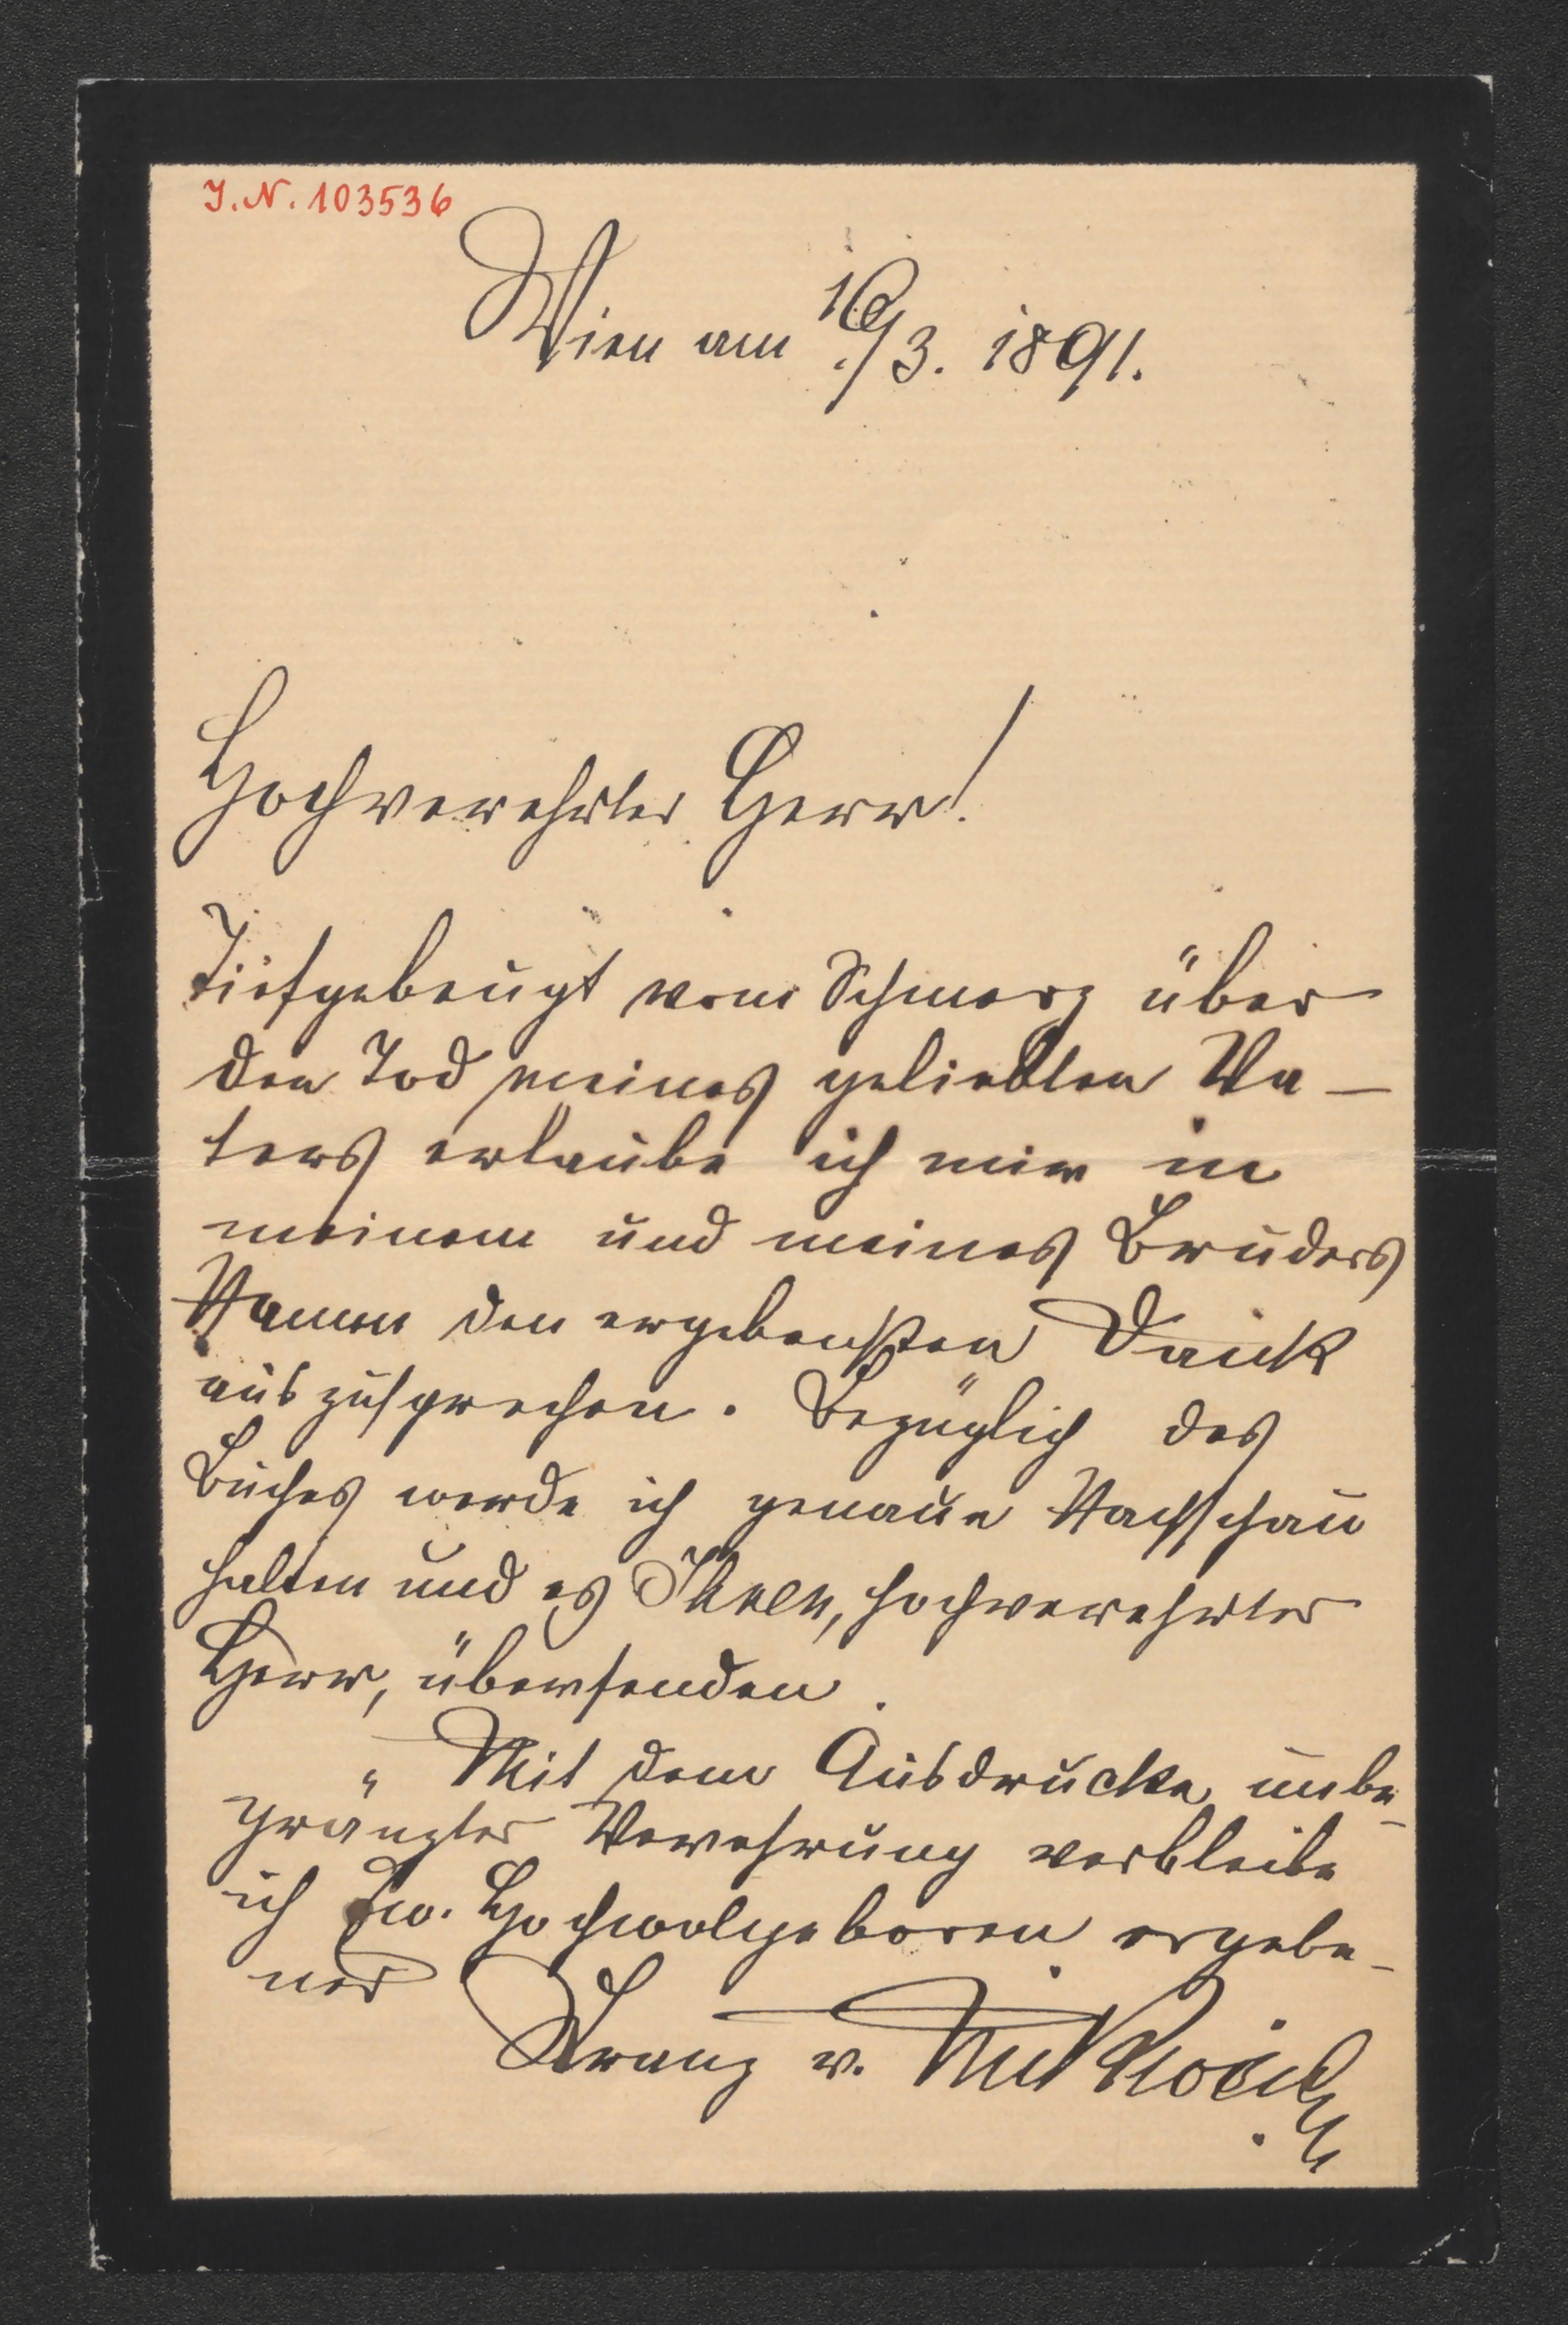 J. N. 103536
Wien am 16/3. 1891.
Hochverehrter Herr!
Tiefgebeugt vom Schmerz über
den Tod meines geliebten Va-
ters erlaube ich mir in
meinem und meines Bruders
Namen den ergebensten Dank
auszusprechen. Bezüglich des
Buches werde ich genaue Nachschau
halten und es Ihnen, hochverehrter
Herr, übersenden.
Mit dem Ausdrucke unbe-
gränzter Verehrung verbleibe
ich Ew. Hochwolgeboren ergebe-
ner
Franz v. Miklosich